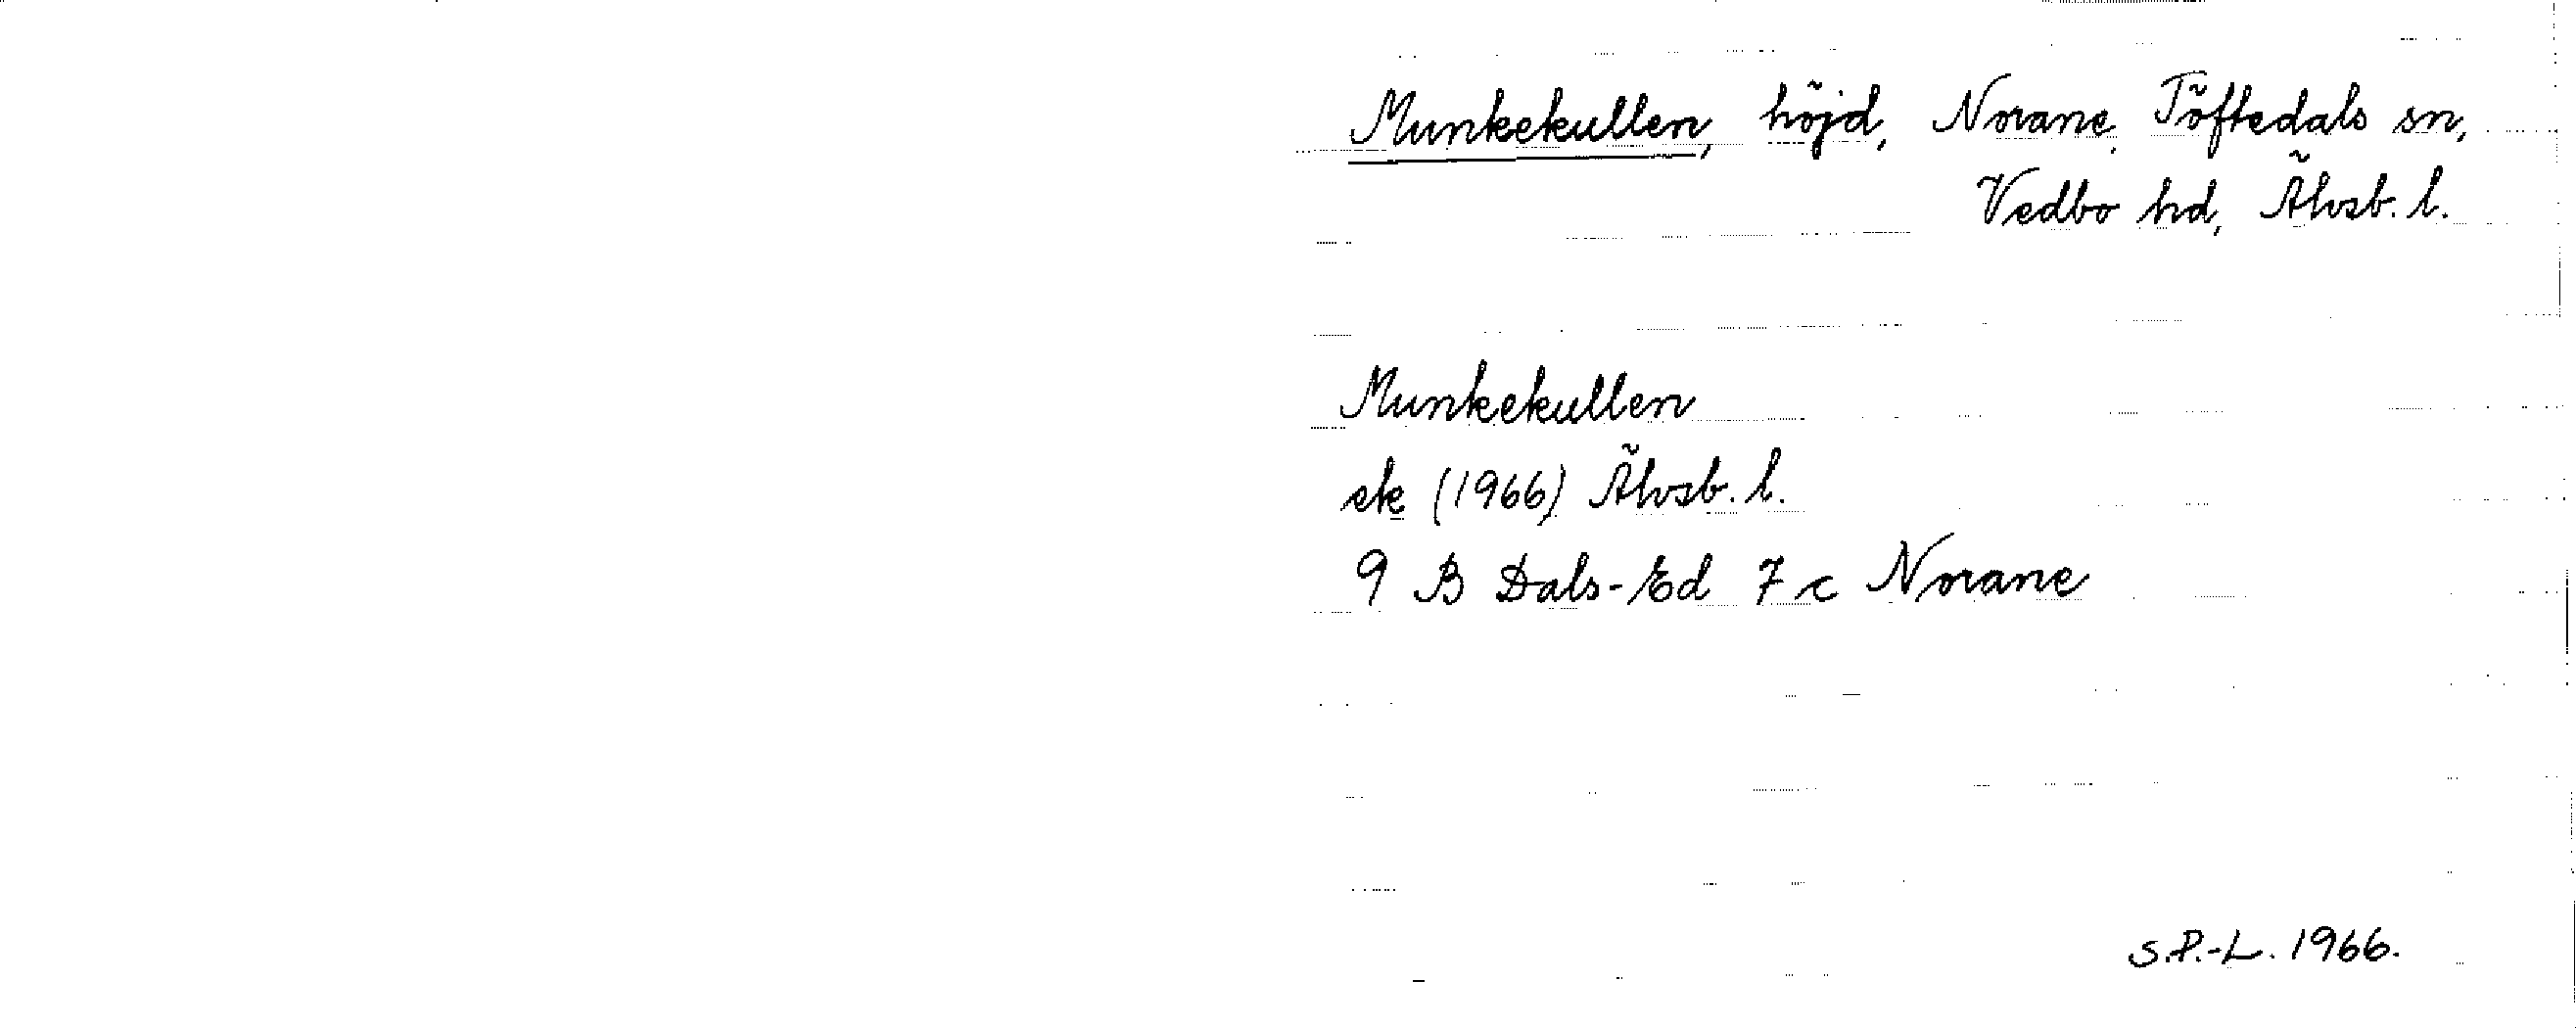 Munkekullen, höjd, Norane, Töftedals sn,
Vedbo hd, Älvsb. l.
Munkekullen
ek (1966) Älvsb. l.
9 B Dals-Ed 7 c Norane
S.P.-L. 1966.